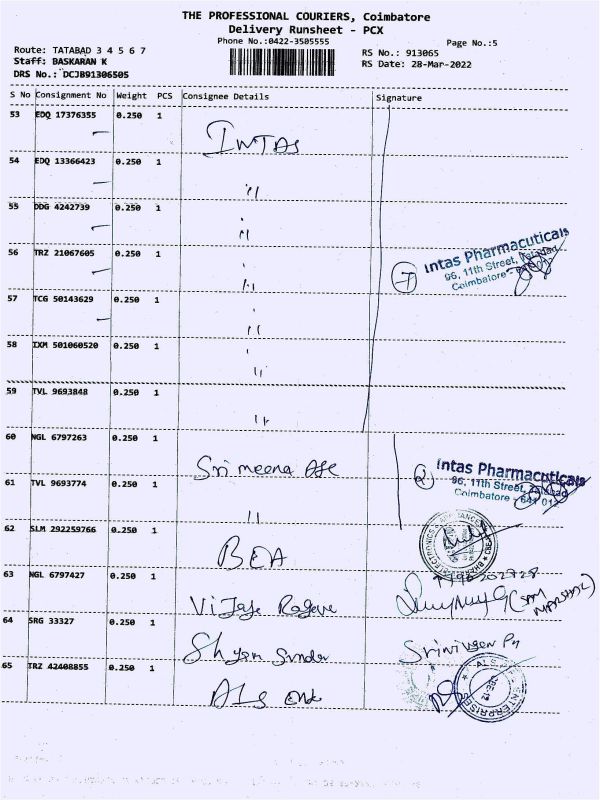 THE PROFESSIONAL COURIERS, Coimbatore
Delivery Runsheet - PCX
Phone No.:0422-3505555
Page No.:5
Route: TATABAD 3 4 5 6 7
Staff: BASKARAN K
DRS No.: DCJB91306505
RS No.: 913065
RS Date: 28-Mar-2022
S No Consignment No Weight PCS Consignee Details Signature
53 EDQ 17376355 0.250 1 INTAS
54 EDQ 13366423 0.250 1 "
55 DDG 4242739 0.250 1 "
56 TRZ 21067605 0.250 1 "
7 Intas Pharmacuticals
96, 11th Street, Tatabad
Coimbatore -
57 TCG 50143629 0.250 1 "
58 IXM 501060520 0.250 1 "
59 TVL 9693848 0.250 1 "
60 NGL 6797263 0.250 1 Sri meena
2 Intas Pharmacuticals
96, 11th Street, Tatabad
Coimbatore - 641 012
61 TVL 9693774 0.250 1 "
62 SLM 292259766 0.250 1 BEA
63 NGL 6797427 0.250 1 Vijaya
64 SRG 33327 0.250 1 Shyam Sundar
65 TRZ 42408855 0.250 1 ALS
ENTERPRISES